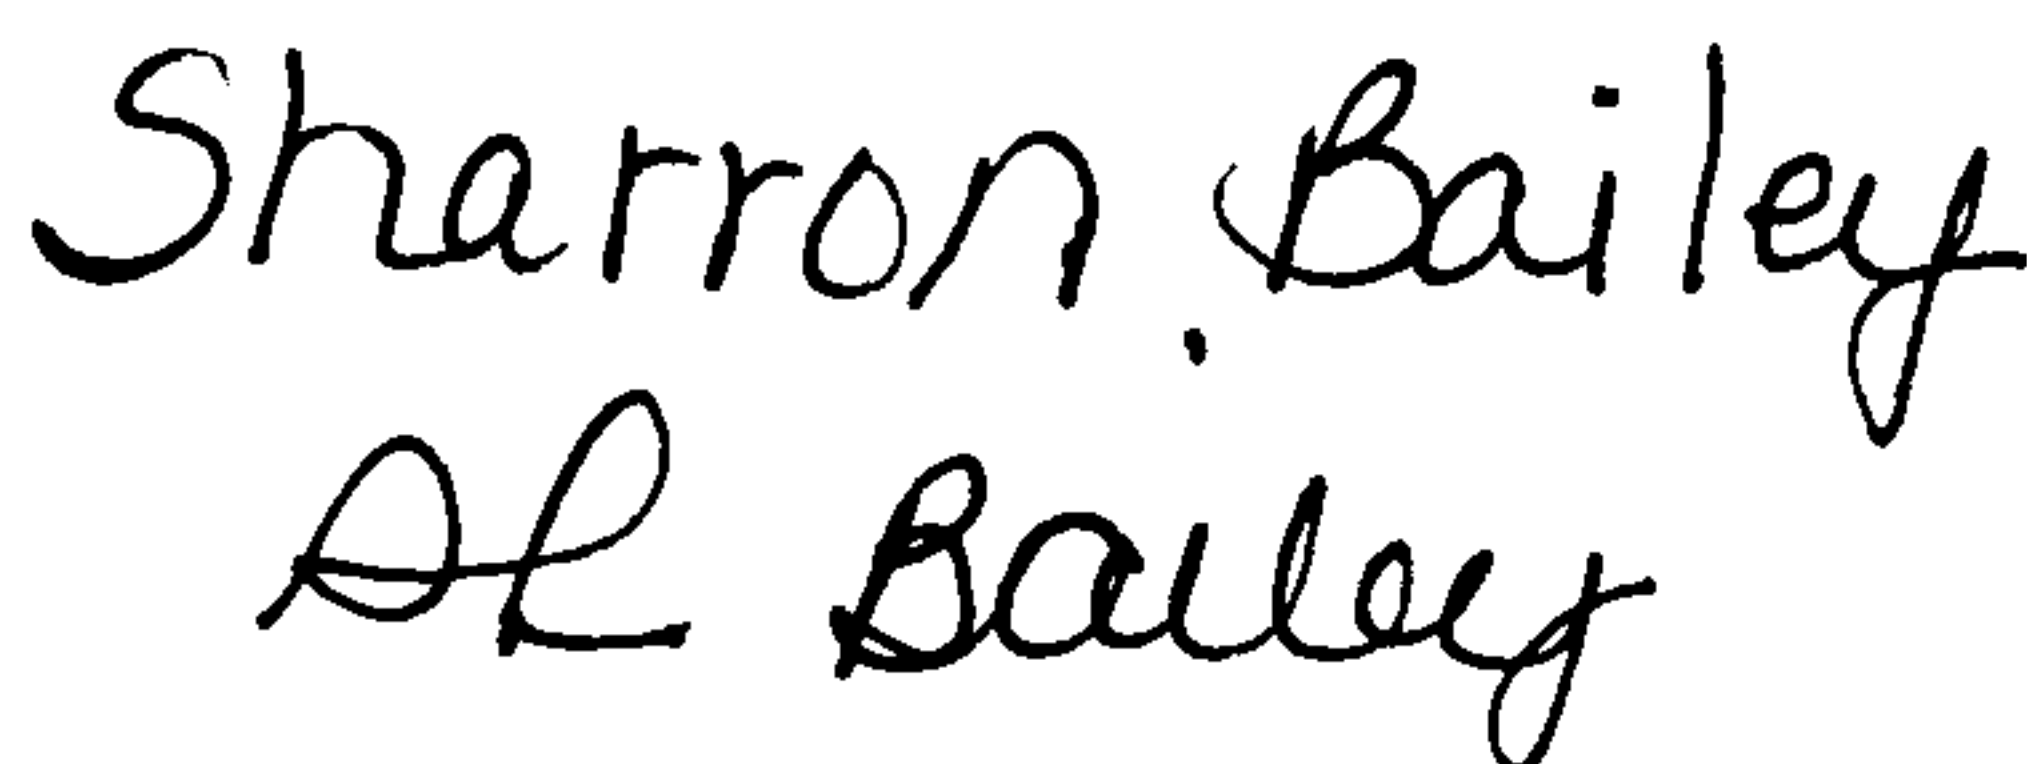 Sharron Bailey
SL Bailey